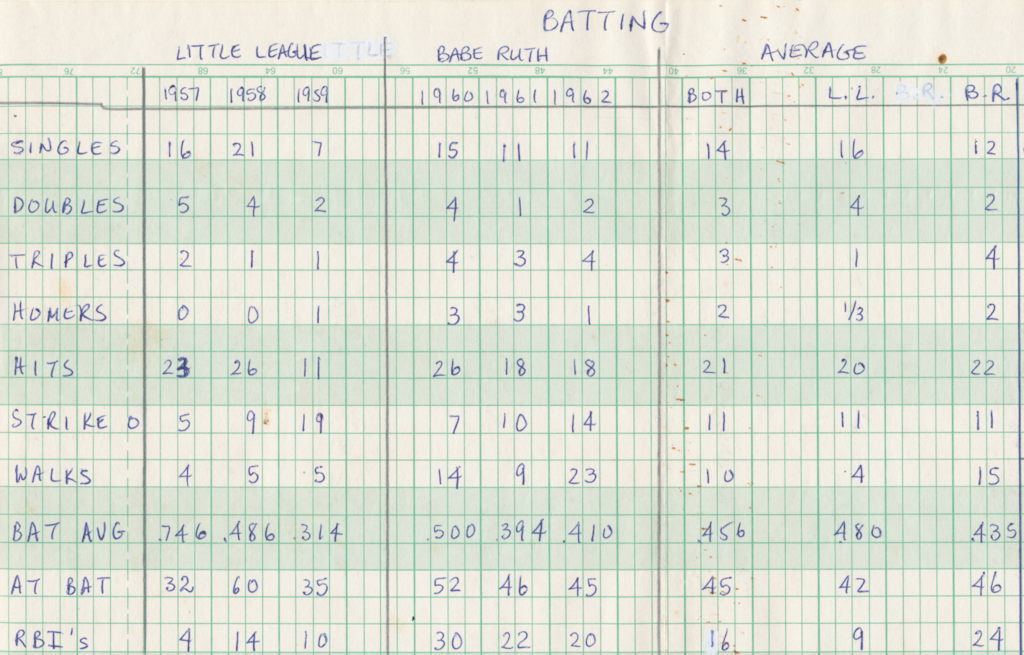 BATTING
LITTLE LEAGUE BABE RUTH AVERAGE
76 72 68 64 60 56 52 48 44 40 36 32 28 24 20
1957 1958 1959 1960 1961 1962 BOTH L.L. B.R. B.R.
SINGLES 16 21 7 15 11 11 14 16 12
DOUBLES 5 4 2 4 1 2 3 4 2
TRIPLES 2 1 1 4 3 4 3 1 4
HOMERS 0 0 1 3 3 1 2 1/3 2
HITS 23 26 11 26 18 18 21 20 22
STRIKE O 5 9 19 7 10 14 11 11 11
WALKS 4 5 5 14 9 23 10 4 15
BAT AVG .746 .486 .314 .500 .394 .410 .456 .480 .435
AT BAT 32 60 35 52 46 45 45 42 46
RBI's 4 14 10 30 22 20 16 9 24